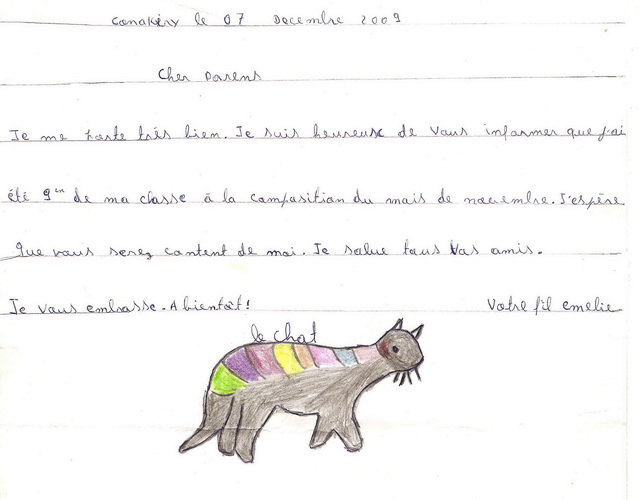 Conakéry le 07 Decembre 2009
Cher Parens
Je me porte très bien. Je suis heureux de vous informer que j'ai
été 9en de ma classe à la composition du mois de novembre. J'espère
que vous serez content de moi. Je salue tous vos amis.
Je vous embrasse. A bientôt! Votre fil emelie
le chat